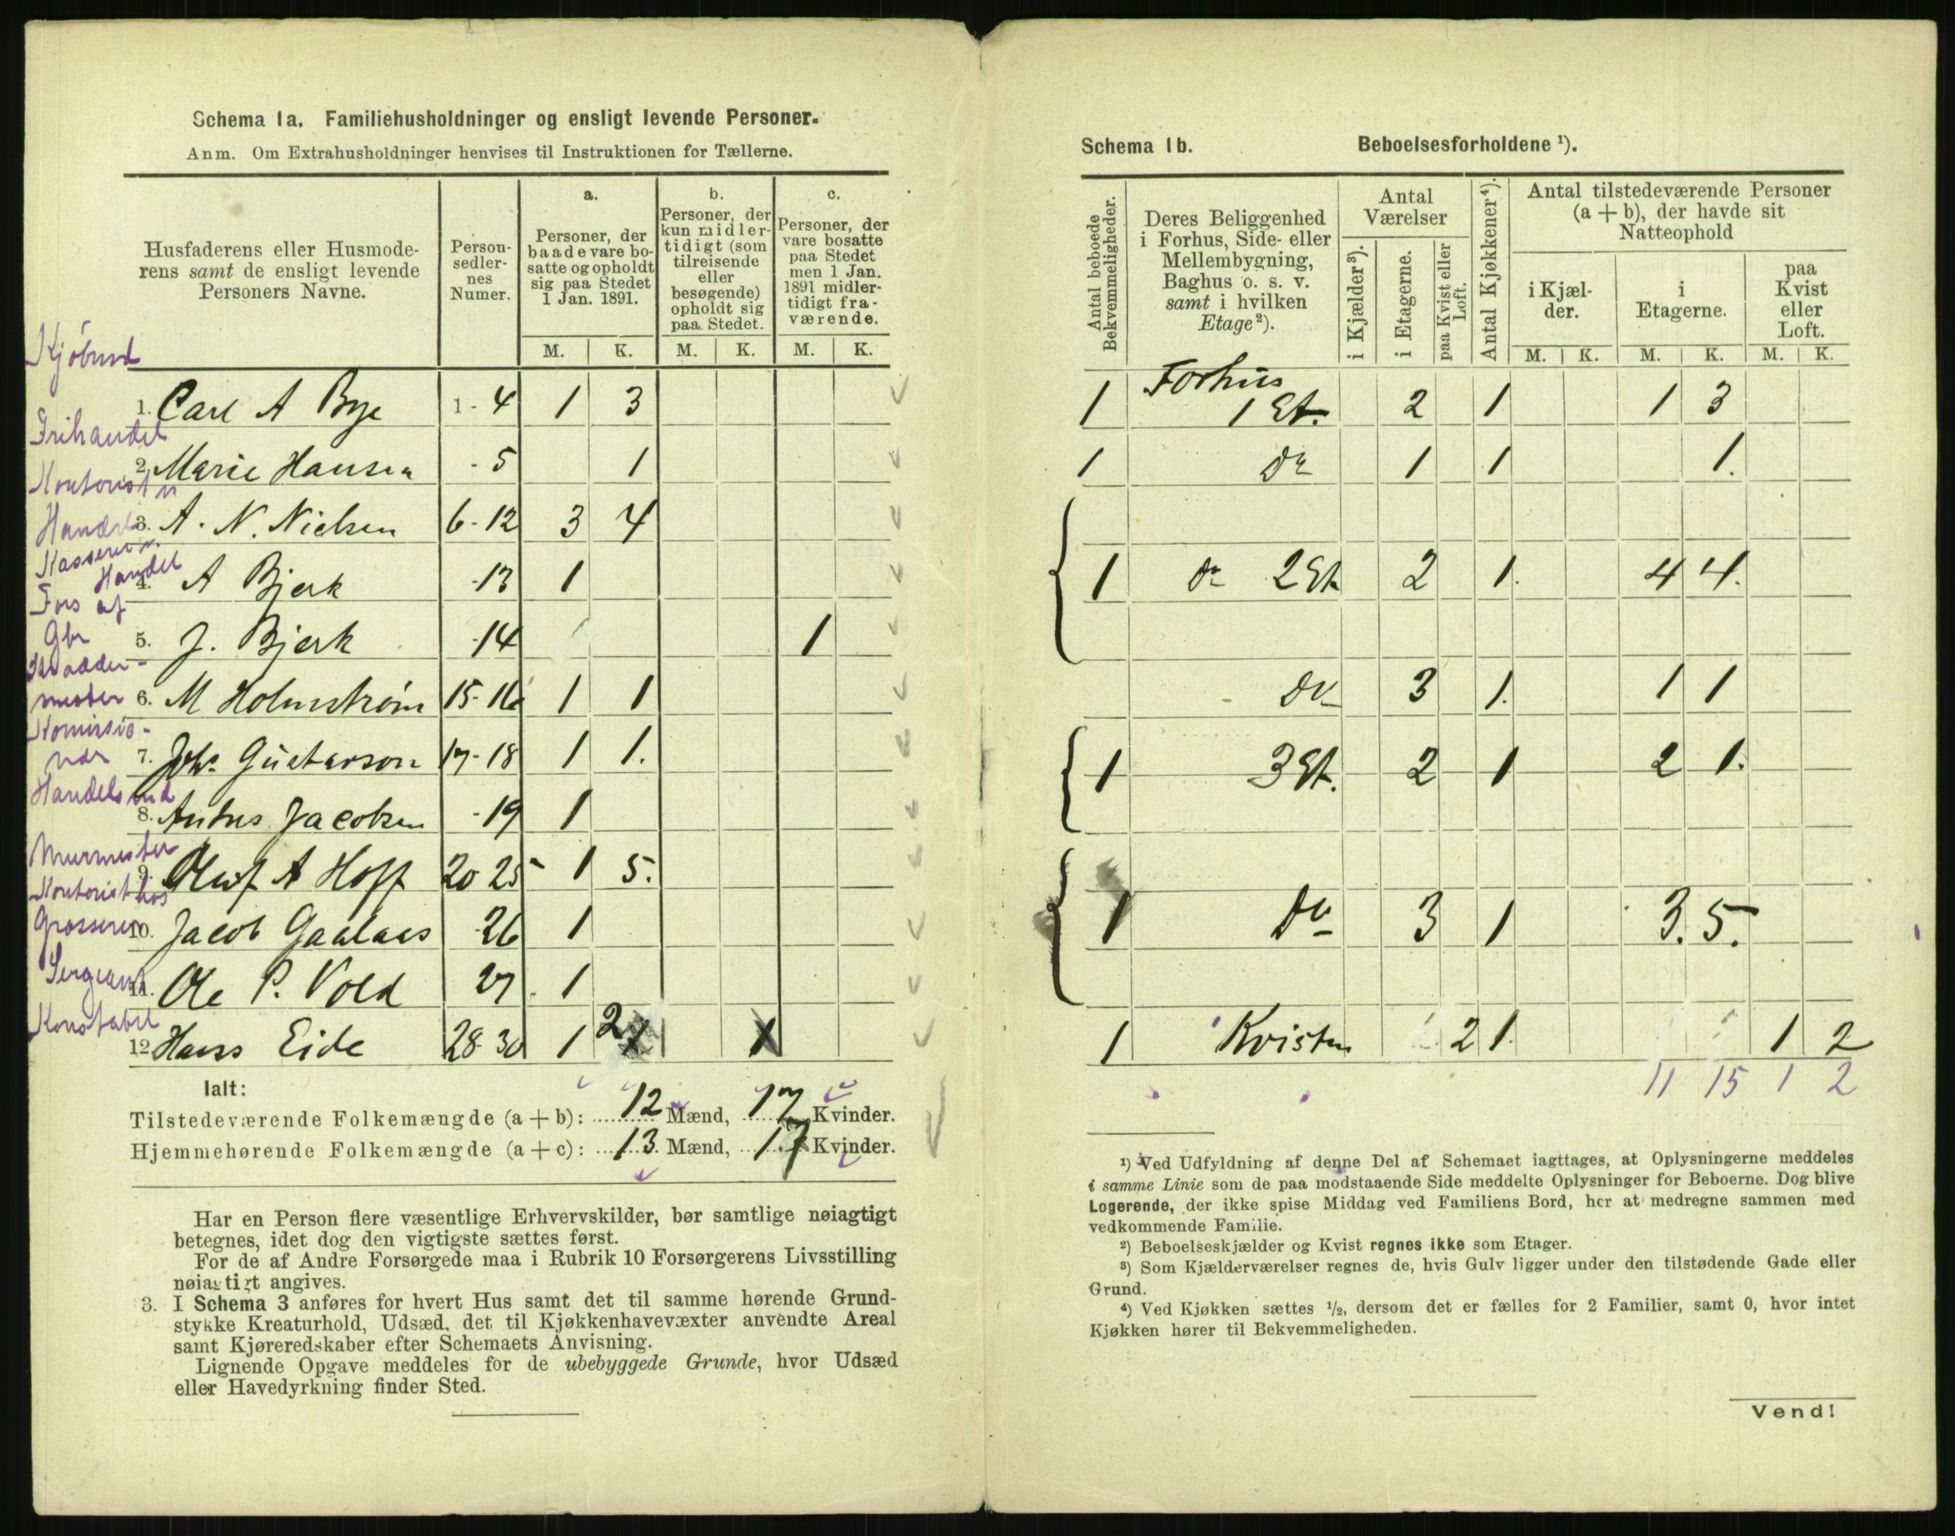 Schema 1a. Familiehusholdninger og ensligt levende Personer.
Anm. Om Extrahusholdninger henvises til Instruktionen for Tællerne.
Husfaderens eller Husmode-
rens samt de ensligt levende
Personers Navne.
Person-
sedler-
nes
Numer.
a.
Personer, der
baade vare bo-
satte og opholdt
sig paa Stedet
1 Jan. 1891.
b.
Personer, der
kun midler-
tidigt (som
tilreisende
eller
besøgende)
opholdt sig
paa Stedet.
c.
Personer, der
vare bosatte
paa Stedet
men 1 Jan.
1891 midler-
tidigt fra-
værende.
M. K. M. K. M. K.
Kjøbmd
1. Carl A Bye 1-4 1 3
Frihandel
2. Marie Hansen -5 1
Kontorist v
Handel
3. A. N. Nielsen 6-12 3 4
Kasserer v.
Handel
4. A Bjerk -13 1
Fors af
Gbr
5. J. Bjerk -14 1
Skrædder-
mester
6. M Holmstrøm 15-16 1 1
Komissio-
nær
7. Johs Gustavson 17-18 1 1.
Handelsmd
8. Antns Jacobsen -19 1
Murmester
9. Oluf A Hoff 20-25 1 5.
Kontorist hos
Grosserer
10. Jacob Gaalaas -26 1
Sergeant
11. Ole P. Vold 27 1
Konstabel
12 Hans Eide 28-30 1 2 1 1
Ialt:
Tilstedeværende Folkemængde (a + b): 12 Mænd, 17 Kvinder.
Hjemmehørende Folkemængde (a + c): 13 Mænd, 17 Kvinder.
Har en Person flere væsentlige Erhvervskilder, bør samtlige nøiagtigt
betegnes, idet dog den vigtigste sættes først.
For de af Andre Forsørgede maa i Rubrik 10 Forsørgerens Livsstilling
nøiagtigt angives.
3. I Schema 3 anføres for hvert Hus samt det til samme hørende Grund-
stykke Kreaturhold, Udsæd, det til Kjøkkenhavevæxter anvendte Areal
samt Kjøreredskaber efter Schemaets Anvisning.
Lignende Opgave meddeles for de ubebyggede Grunde, hvor Udsæd
eller Havedyrkning finder Sted.
Schema 1b. Beboelsesforholdene ¹).
Antal beboede
Bekvemmeligheder.
Deres Beliggenhed
i Forhus, Side- eller
Mellembygning,
Baghus o. s. v.
samt i hvilken
Etage²).
Antal
Værelser
i Kjælder³).
i Etagerne.
paa Kvist eller
Loft.
Antal Kjøkkener⁴).
Antal tilstedeværende Personer
(a + b), der havde sit
Natteophold
i Kjæl-
der.
i
Etagerne.
paa
Kvist
eller
Loft.
M. K. M. K. M. K.
1 Forhus
1 Et. 2 1 1 3
1 Do 1 1 1.
1 Do 2 Et 2 1. 4 4.
Do 3 1. 1 1
1 3 Et. 2 1 2 1.
1 Do 3 1 3. 5.
1 Kvisten 2 1. 1 2
11 15 1 2
¹) Ved Udfyldning af denne Del af Schemaet iagttages, at Oplysningerne meddeles
i samme Linie som de paa modstaaende Side meddelte Oplysninger for Beboerne. Dog blive
Logerende, der ikke spise Middag ved Familiens Bord, her at medregne sammen med
vedkommende Familie.
²) Beboelseskjælder og Kvist regnes ikke som Etager.
³) Som Kjælderværelser regnes de, hvis Gulv ligger under den tilstødende Gade eller
Grund.
⁴) Ved Kjøkken sættes ½, dersom det er fælles for 2 Familier, samt 0, hvor intet
Kjøkken hører til Bekvemmeligheden.
Vend!